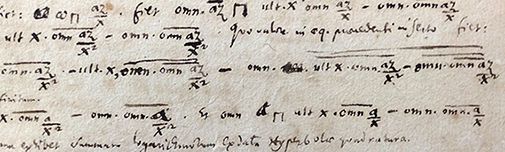 fiet omn. az/x ⊓ ult. x omn az/x² – omn. az/x²
omn. az/x² – omn. omn az/x². Quo valore in eq. precedenti inserto fiet:
omn. az/x² – ult. x, omn. omn az/x² – omn. ult x. omn. az/x² – omn. omn az/x²
x. omn a/x² – omn. omn. a/x². Et omn ⊓ ult x omn. a/x – omn. omn. a/x
exhibet summam logarithmorum ex data Hyperbolae quadratura.